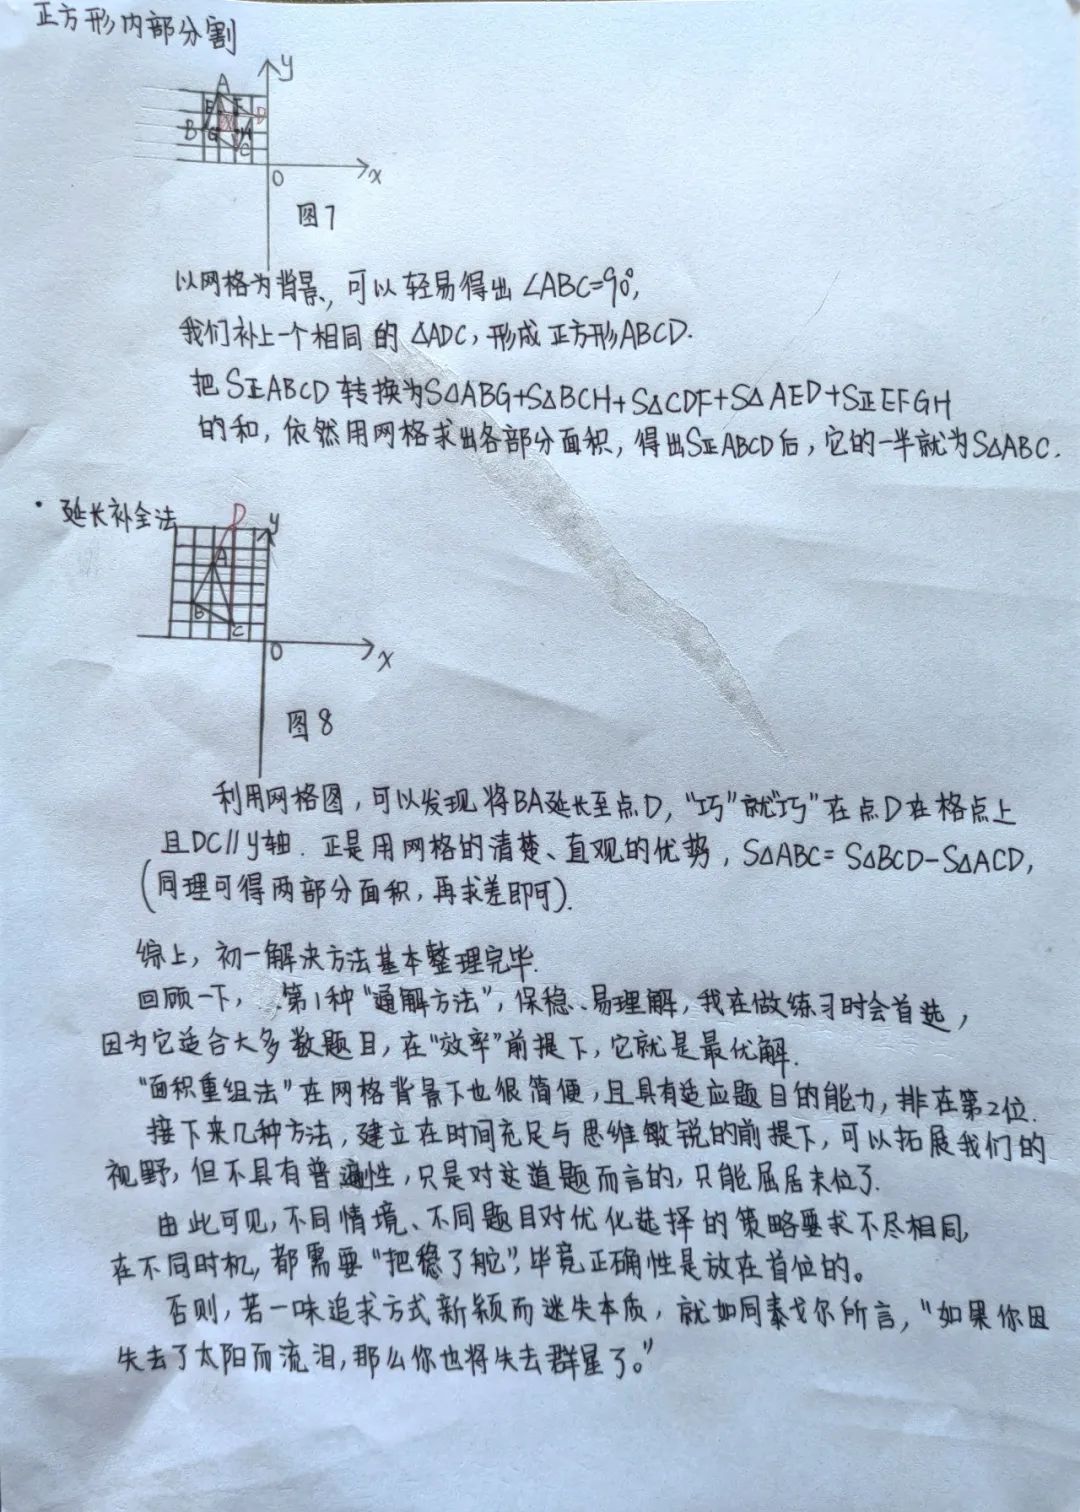 正方形内部分割
y
A
E F D
B G H
C
O x
图7
以网格为背景,可以轻易得出∠ABC=90°,
我们补上一个相同的△ADC,形成正方形ABCD.
把S正ABCD转换为S△ABG+S△BCH+S△CDF+S△AED+S正EFGH
的和,依然用网格求出各部分面积,得出S正ABCD后,它的一半就为S△ABC.
·延长补全法
D y
A
B C
O x
图8
利用网格图,可以发现将BA延长至点D,"巧"就"巧"在点D在格点上
且DC∥y轴.正是用网格的清楚、直观的优势,S△ABC=S△BCD-S△ACD,
(同理可得两部分面积,再求差即可).
综上,初一解决方法基本整理完毕.
回顾一下,第1种"通解方法",保稳、易理解,我在做练习时会首选,
因为它适合大多数题目,在"效率"前提下,它就是最优解.
"面积重组法"在网格背景下也很简便,且具有适应题目的能力,排在第2位.
接下来几种方法,建立在时间充足与思维敏锐的前提下,可以拓展我们的
视野,但不具有普遍性,只是对这道题而言的,只能屈居末位了.
由此可见,不同情境、不同题目对优化选择的策略要求不尽相同,
在不同时机,都需要"把稳了舵",毕竟正确性是放在首位的。
否则,若一味追求方式新颖而迷失本质,就如同泰戈尔所言,"如果你因
失去了太阳而流泪,那么你也将失去群星了。"